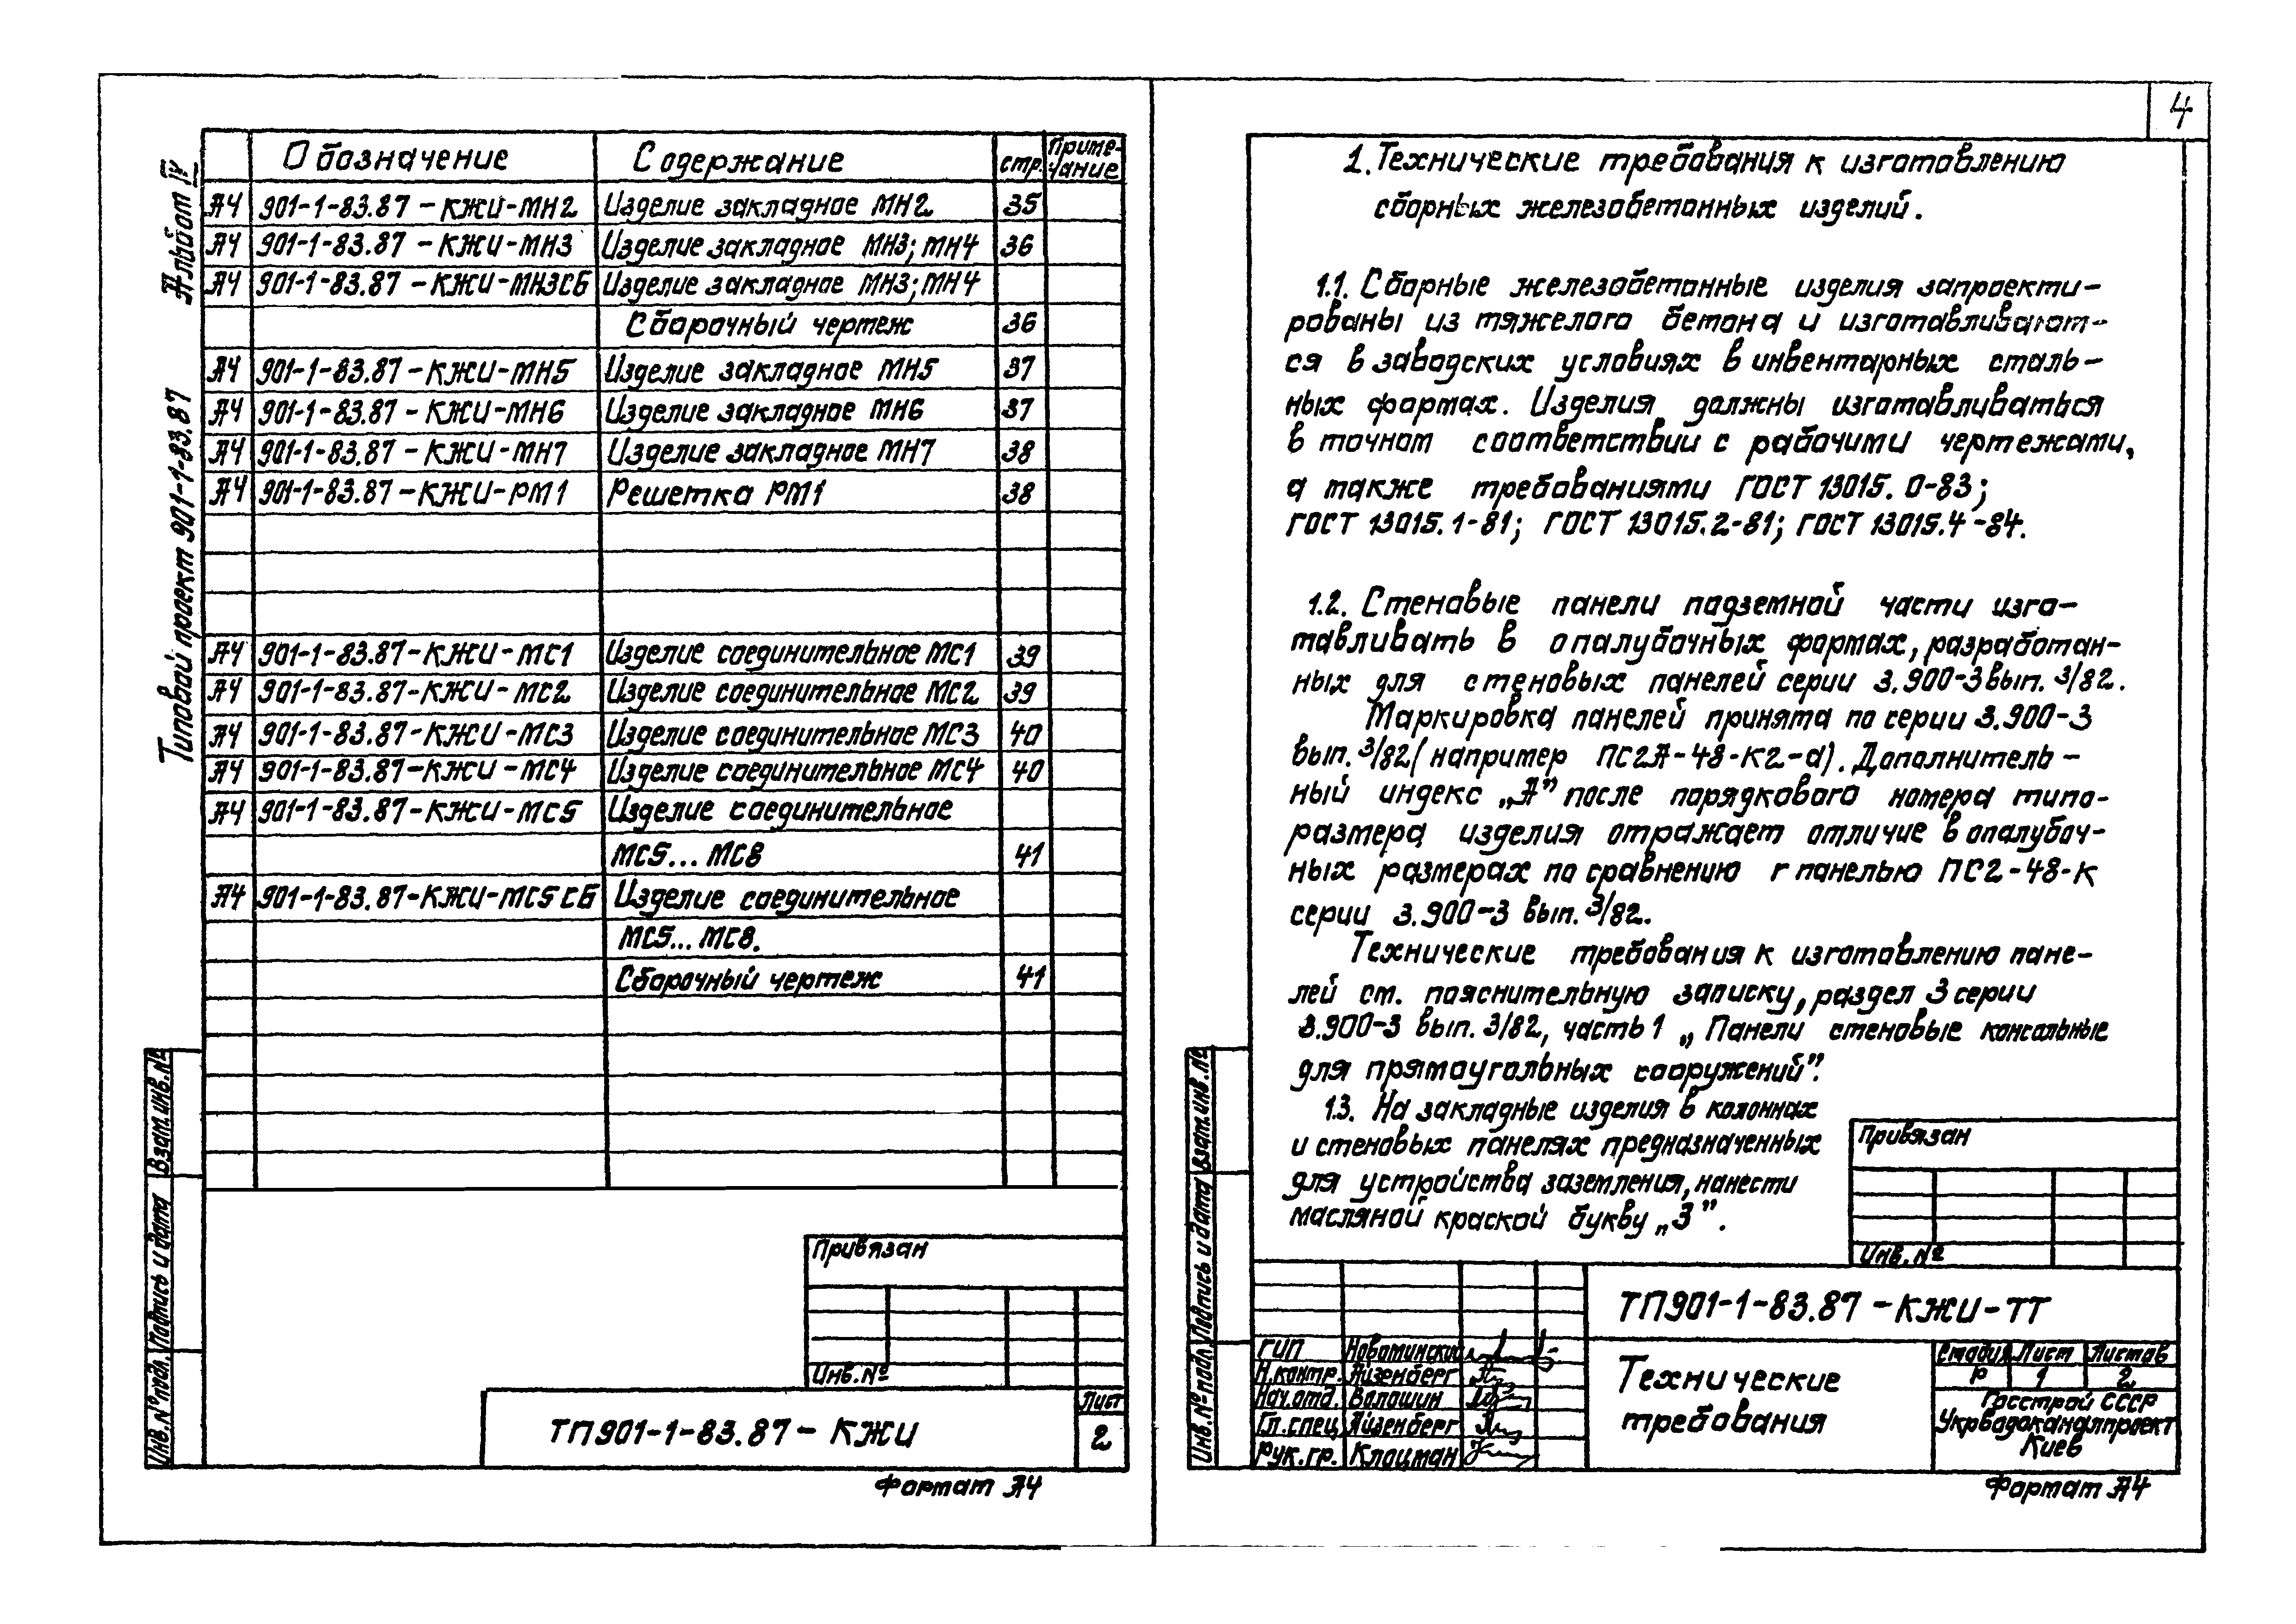 4
Альбом IV
Типовой проект 901-1-83.87
Обозначение Содержание стр. Приме-
чание
А4 901-1-83.87-КЖИ-МН2 Изделие закладное МН2 35
А4 901-1-83.87-КЖИ-МН3 Изделие закладное МН3; МН4 36
А4 901-1-83.87-КЖИ-МН3СБ Изделие закладное МН3; МН4
Сборочный чертеж 36
А4 901-1-83.87-КЖИ-МН5 Изделие закладное МН5 37
А4 901-1-83.87-КЖИ-МН6 Изделие закладное МН6 37
А4 901-1-83.87-КЖИ-МН7 Изделие закладное МН7 38
А4 901-1-83.87-КЖИ-РМ1 Решетка РМ1 38
А4 901-1-83.87-КЖИ-МС1 Изделие соединительное МС1 39
А4 901-1-83.87-КЖИ-МС2 Изделие соединительное МС2 39
А4 901-1-83.87-КЖИ-МС3 Изделие соединительное МС3 40
А4 901-1-83.87-КЖИ-МС4 Изделие соединительное МС4 40
А4 901-1-83.87-КЖИ-МС5 Изделие соединительное
МС5...МС8 41
А4 901-1-83.87-КЖИ-МС5СБ Изделие соединительное
МС5...МС8.
Сборочный чертеж 41
Взам.инв.№
Подпись и дата
Инв.№подл.
Привязан
Инв.№
ТП901-1-83.87-КЖИ
Лист
2
Формат А4
1. Технические требования к изготовлению
сборных железобетонных изделий.
1.1. Сборные железобетонные изделия запроекти-
рованы из тяжелого бетона и изготавливают-
ся в заводских условиях в инвентарных сталь-
ных формах. Изделия должны изготавливаться
в точном соответствии с рабочими чертежами,
а также требованиями ГОСТ 13015.0-83;
ГОСТ 13015.1-81; ГОСТ 13015.2-81; ГОСТ 13015.4-84.
1.2. Стеновые панели подземной части изго-
тавливать в опалубочных формах, разработан-
ных для стеновых панелей серии 3.900-3 вып. 3/82.
Маркировка панелей принята по серии 3.900-3
вып. 3/82 (например ПС2А-48-К2-а). Дополнитель-
ный индекс „А” после порядкового номера типо-
размера изделия отражает отличие в опалубоч-
ных размерах по сравнению г панелью ПС2-48-К
серии 3.900-3 вып. 3/82.
Технические требования к изготовлению пане-
лей см. пояснительную записку, раздел 3 серии
3.900-3 вып. 3/82, часть 1 „Панели стеновые консольные
для прямоугольных сооружений”.
1.3. На закладные изделия в колоннах
и стеновых панелях предназначенных
для устройства заземления, нанести
масляной краской букву „З”.
Взам.инв.№
Подпись и дата
Инв.№подл
Привязан
Инв.№
ТП901-1-83.87-КЖИ-ТТ
ГИП Новоминский
Н.контр. Айзенберг
Нач.отд. Волошин
Гл.спец Айзенберг
Рук.гр. Клоцман
Технические
требования
Стадия Лист Листов
Р 1 2
Госстрой СССР
Укрводоканалпроект
Киев
Формат А4